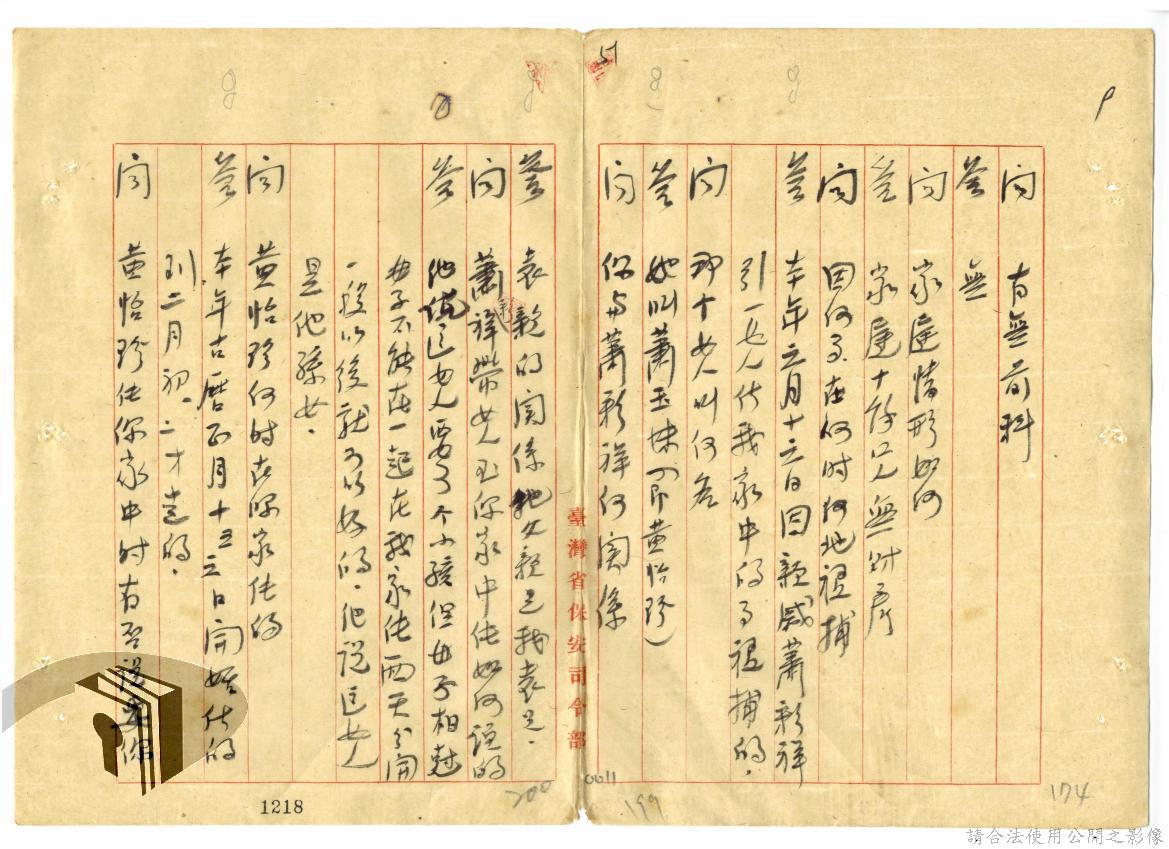 問 有無前科
答 無
問 家庭情形如何
答 家庭十餘口無財產
問 因何事在何時何地被捕
答 本年三月十三日因親戚蕭彩祥
引一女人住我家中的事被捕的.
問 那个女人叫何名
答 她叫蕭玉妹(即黃怡珍)
問 你與蕭彩祥何関係
答 表親的関係他父親是我表兄.
問 蕭祥帶女人至你家中住如何說的
答 他說這女人要了个小孩但母子相尅
母子不能在一起在我家住兩天分開
一段以後就可以好的.他說這女人
是他孫女.
問 黃怡珍何時在你家住的
答 本年古曆正月十五六日開始住的
到二月初.二才走的.
問 黃怡珍住你家中時有否說是你
臺灣省保安司令部
1218
200
0011
199
174
請合法使用公開之影像